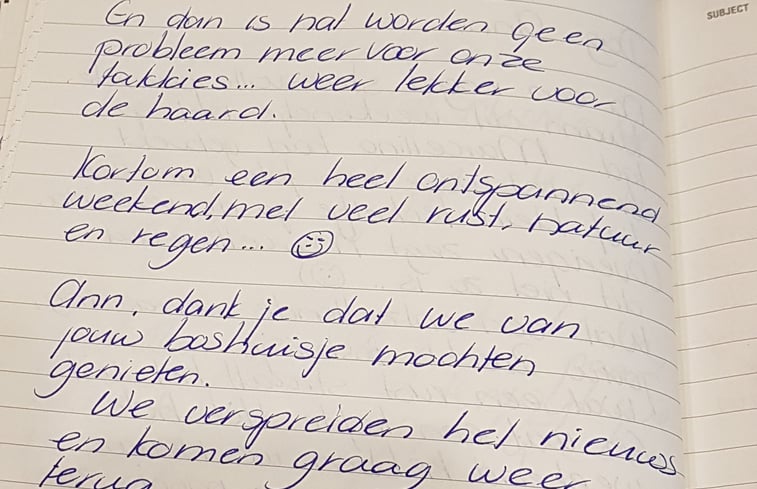 SUBJECT
En dan is nat worden geen
probleem meer voor onze
takkies... weer lekker voor
de haard.
Kortom een heel ontspannend
weekend, met veel rust, natuur
en regen... ☺
Ann, dank je dat we van
jouw boshuisje mochten
genieten.
We verspreiden het nieuws
en komen graag weer
terug